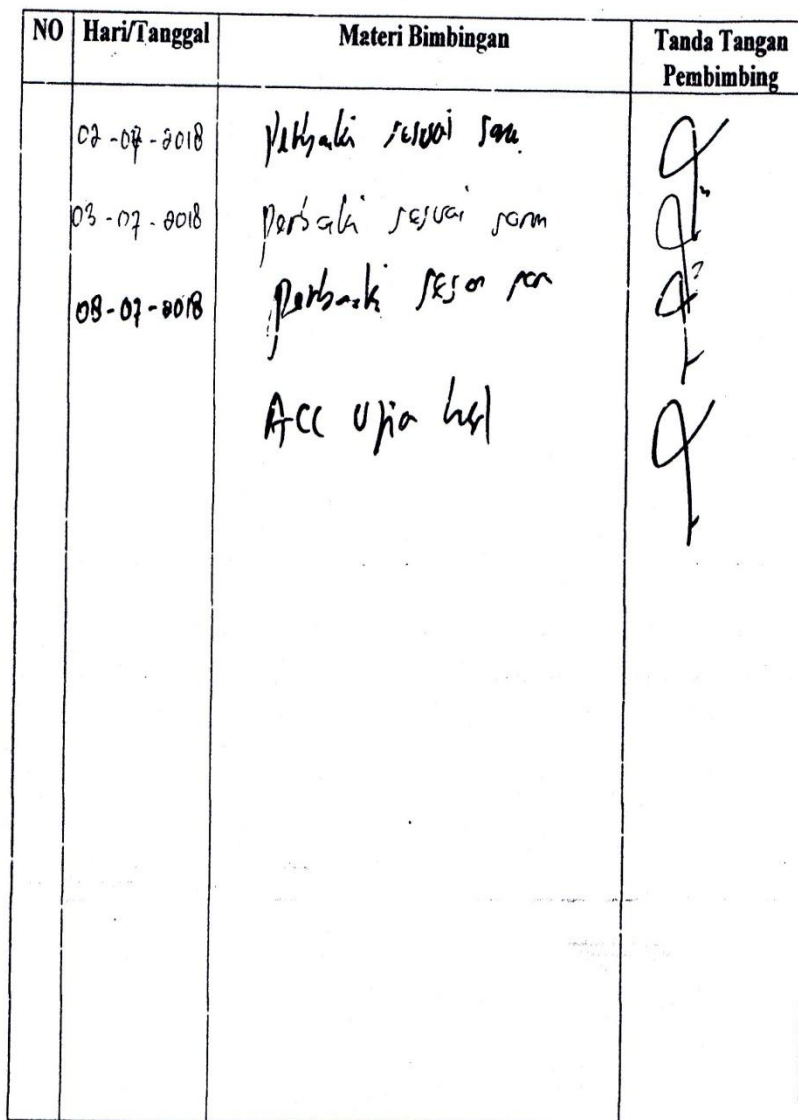 NO Hari/Tanggal Materi Bimbingan Tanda Tangan Pembimbing
02-07-2018 Perbaiki sesuai saran
03-07-2018 perbaiki sesuai saran
08-07-2018 perbaiki sesuai saran
ACC Ujian hasil